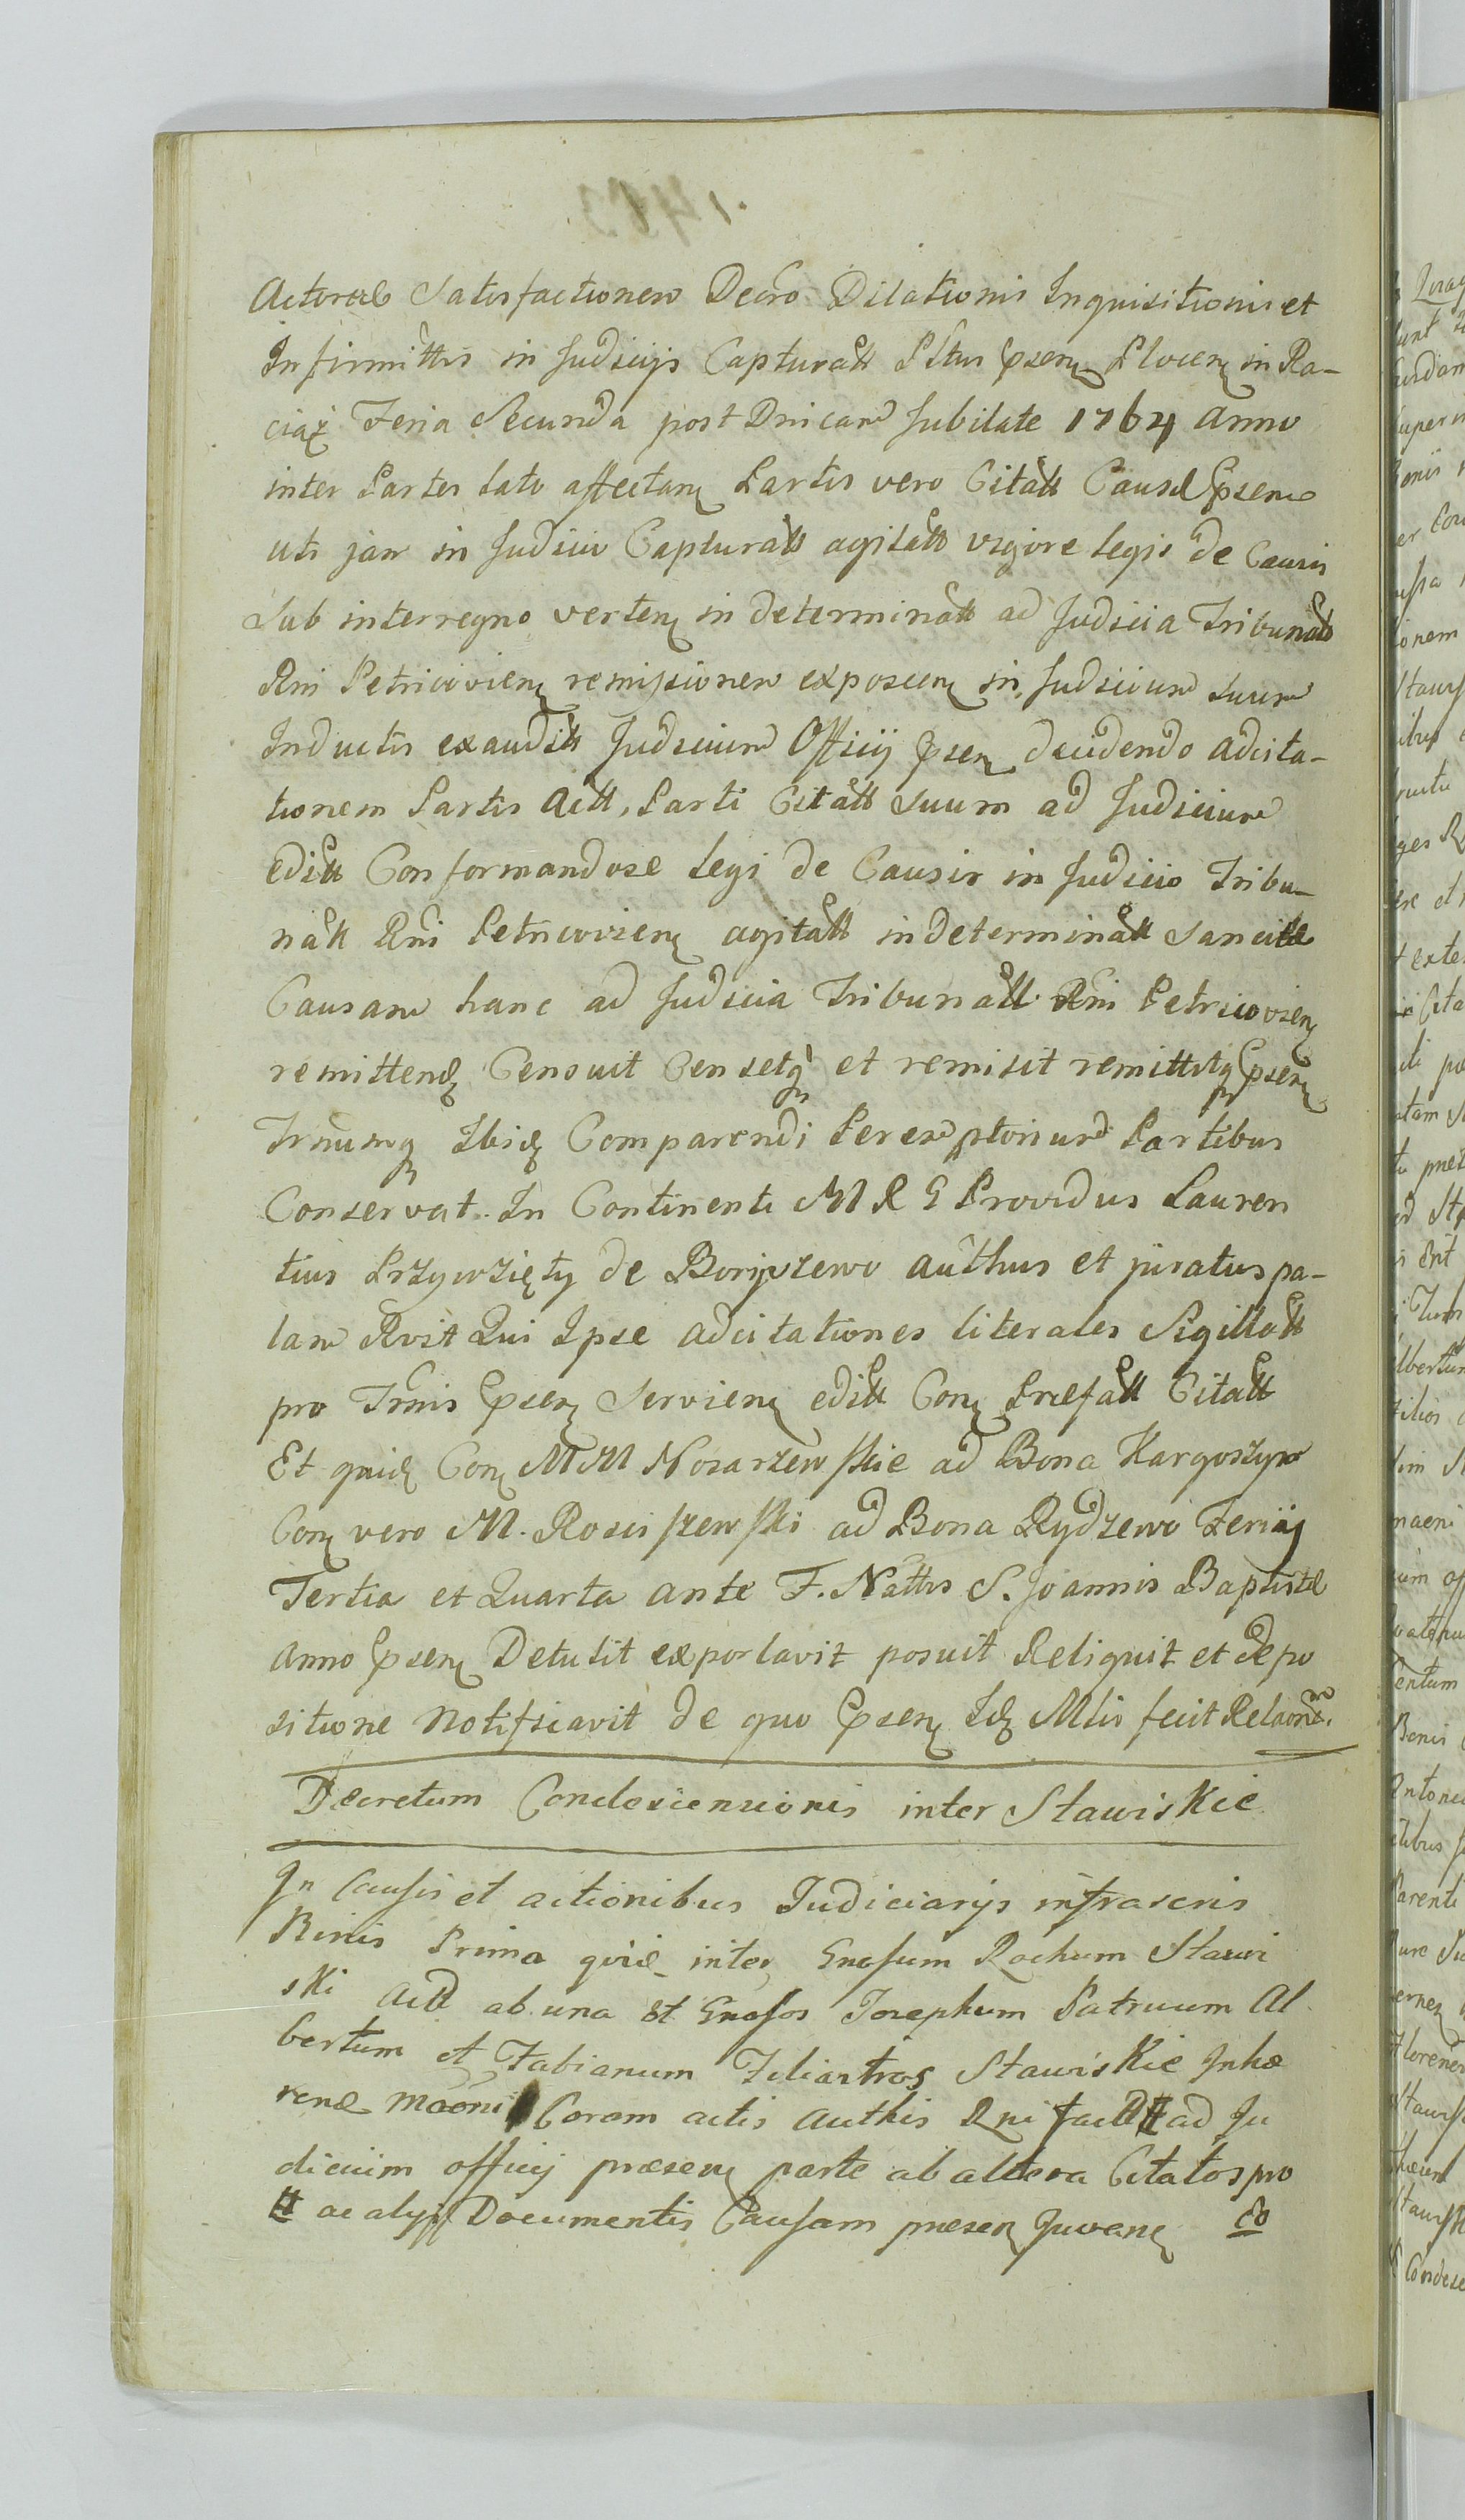 Actorea Satisfactionem Decro Dilationis Inquisitionis et
Infirmittis in Judicijs Capturall Pltus Psen Plocen in Ra-
ciąż Feria Secunda post Dnicam Jubilate 1764 anno
inter Partes lato affectan Partis vero Citall Causæ Psen
uti jam in Judicio Capturall agitall vigore legis de Causis
Sub interregno verten indeterminall ad Judicia Tribunall
Rni Petricovien remissionem exposcen in Judicium suum
Inductis exauditis Judicium Officij Psen decidendo adcita-
tionem Partis Act, Parti Citall suum ad Judicium
edill Conformandose legi de Causis in Judicio Tribu-
nall Rni Petricovien agitall indeterminall sancitæ
Causam hanc ad Judicia Tribunall Rni Petricovien
remittend Censuit Censetq et remisit remittitq Psen
Trnumq Ibid Comparendi Peremptorium Partibus
Conservat. In Continenti M R G Providus Lauren
tius Przywzięty de Boryszewo authus et juratus pa-
lam Rvit Qui Ipse adcitationes literales Sigillall
pro Trnis Psen Servien edill Con Præfall Citall
Et quid Con MM Nosarzewskie ad Bona Kargoszyn
Con vero M. Rosciszewski ad Bona Rydzewo Ferijs
Tertia et Quarta ante F. Nattis S. Joannis Baptistæ
anno Psen Detulit exportavit posuit Reliquit et depo
sitione Notificavit de quo Psen Id Mlis fecit Relaonem.
Decretum Condescensionis inter Stawiskie
In Causis et actionibus Judiciarijs infrascris
Binis Prima quid inter Gnosum Rochum Stawi
ski Act ab una et Gnosos Josephum Patruum Al
bertum et Fabianum Filiastros Stawiskie Inhæ
rend Maoni Coram actis authis Rni fact ad Ju
dicium officij præsen parte ab altera Citatos pro
ut ac alijs Documentis Causam præsen Juvane co